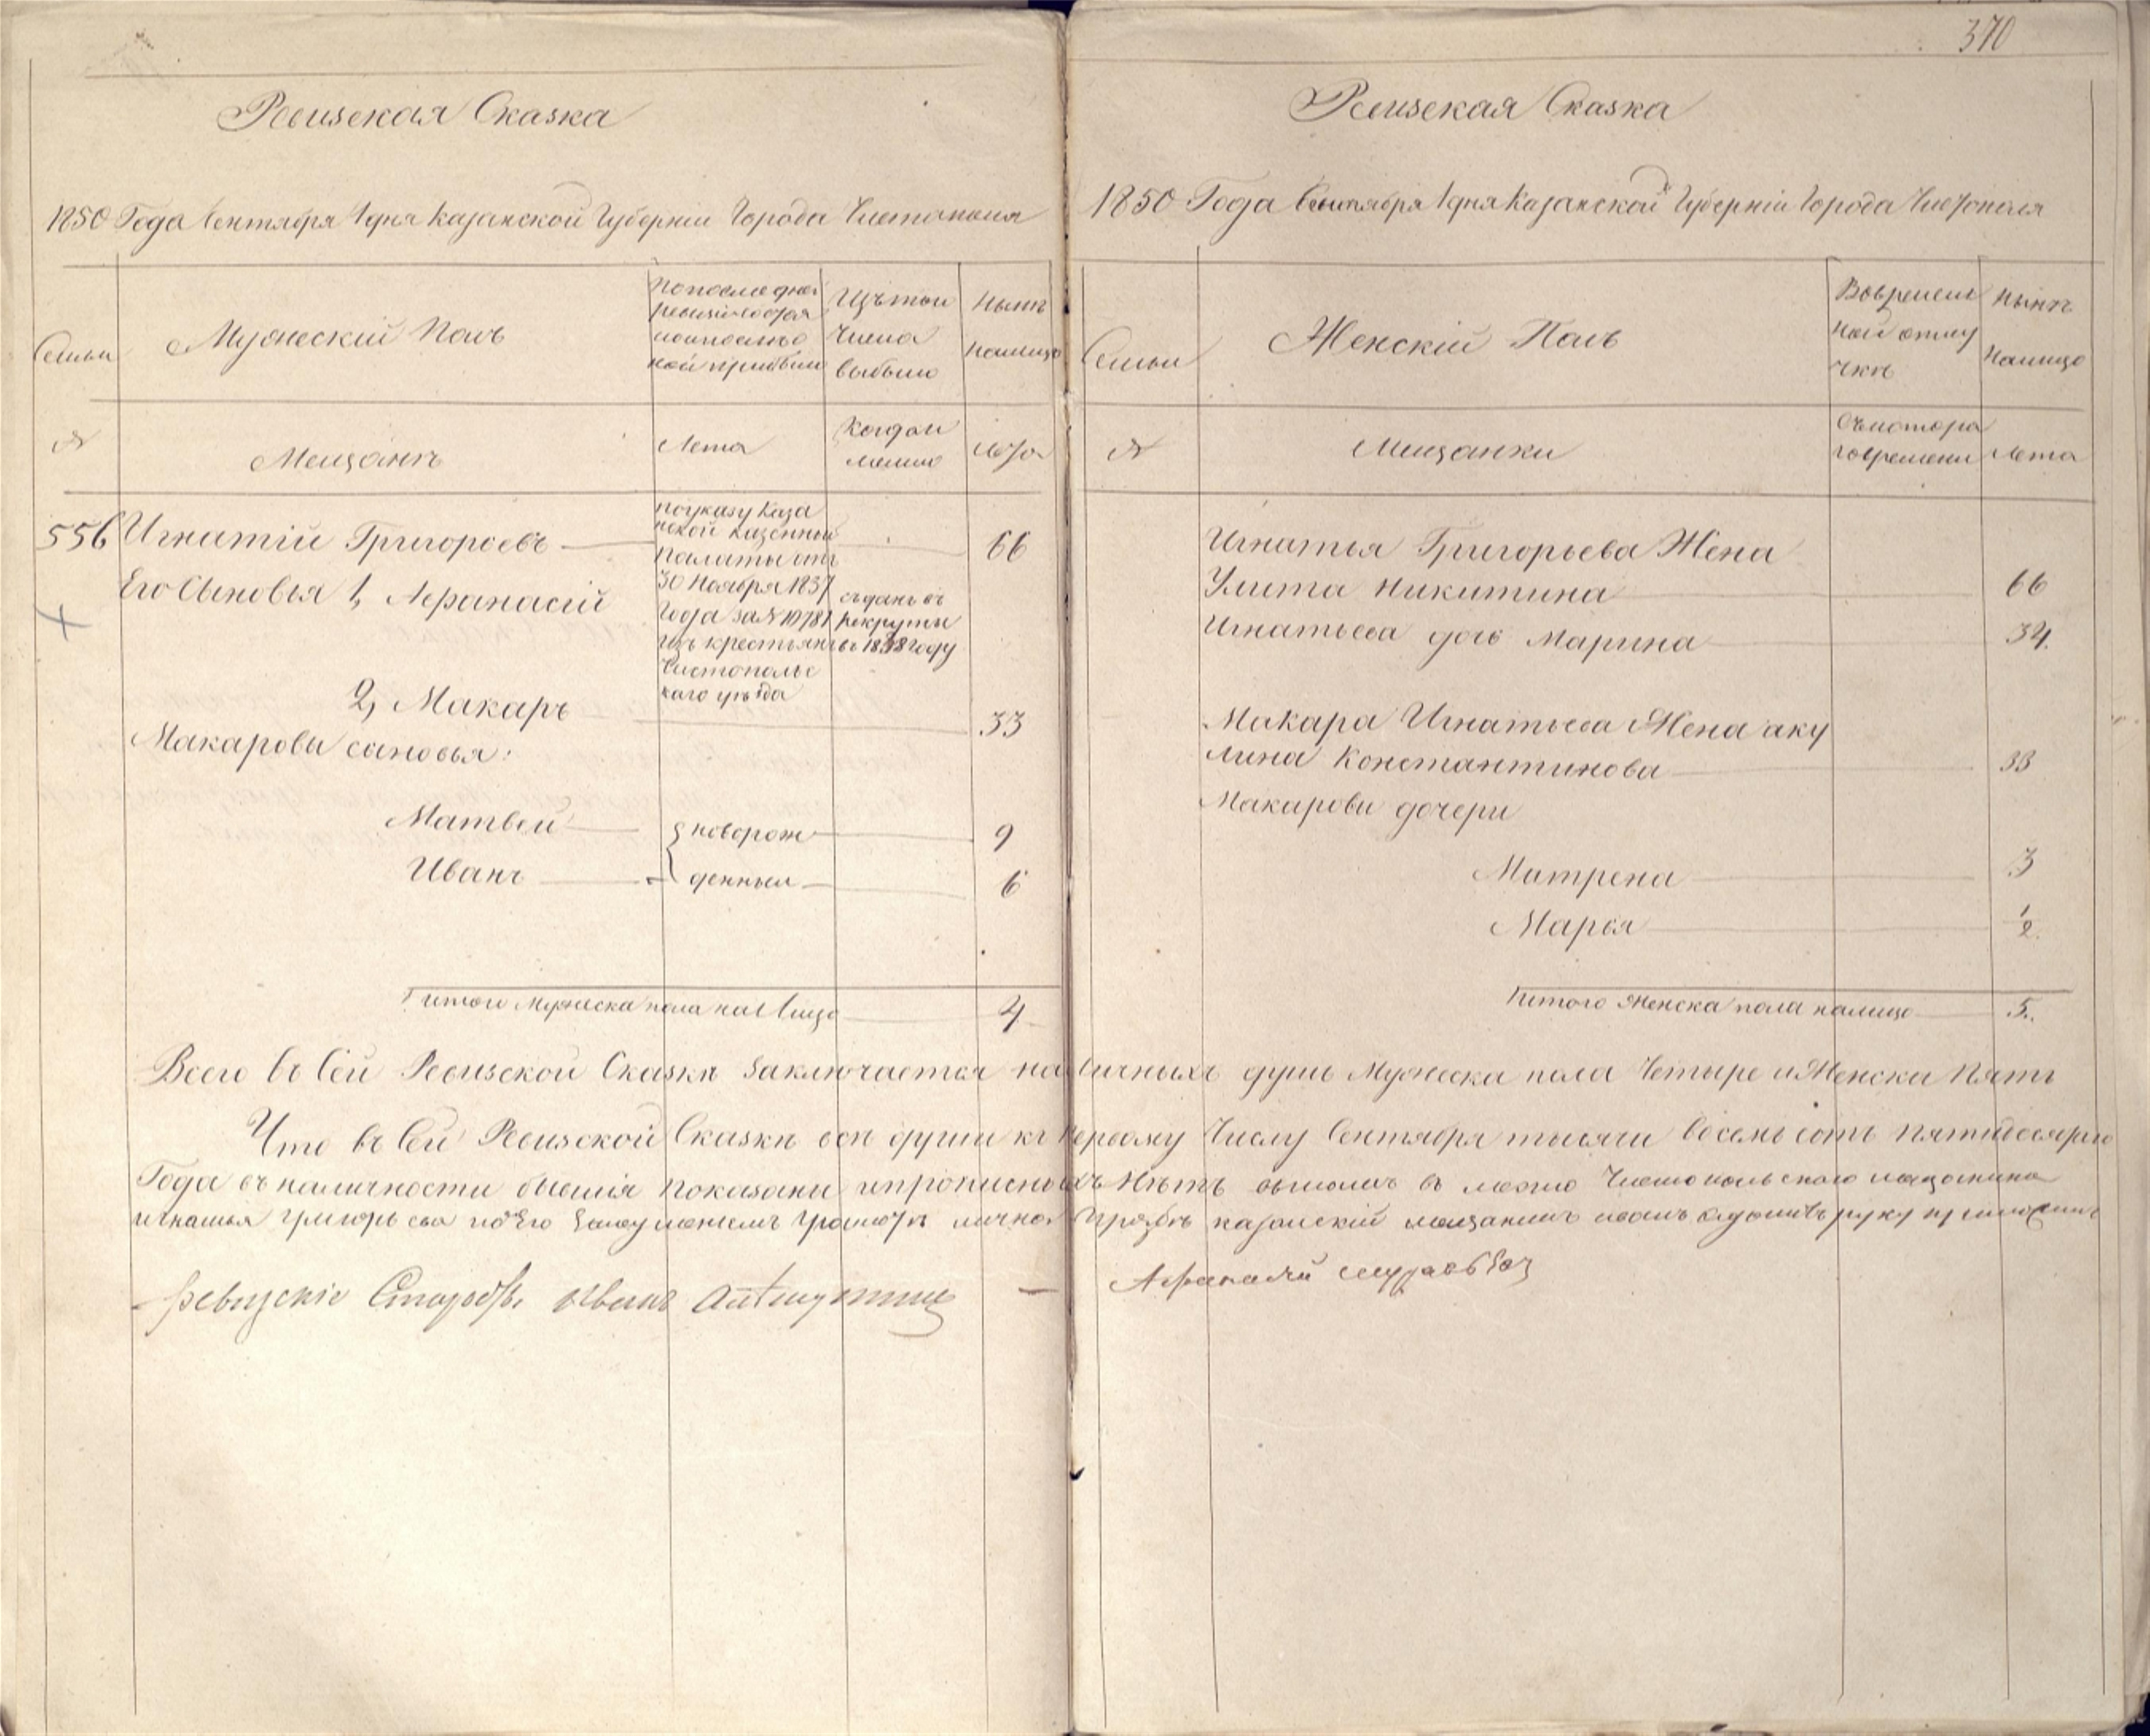 370
Ревизская Сказка
1850 Года Сентября 1 дня Казанской Губерніи Города Чистополя
Семьи
Мужескій Полъ
По последней
ревизіи состоя
ло и после о
ной прибыло
Изъ того
Числа
выбыло
Нынѣ
налицо
№
Мещанъ
Лета
Когда и
Лета
556 Игнатій Григорьевъ
по указу Каза
нской Казенной
Палаты отъ
30 Ноября 1837
Года за № 10781
изъ крестьянъ
Чистопольс
кого уѣзда
66
Его Сыновья 1, Афанасій
сданъ въ
рекруты
въ 1838 году
2, Макаръ
33
Макаровы сыновья:
Матвей
новорож
9
Иванъ
денныи
6
Итого Мужеска пола на лицо
4
Ревизская Сказка
1850 Года Сентября 1 дня Казанской Губерніи Города Чистополя
Семьи
Женскій Полъ
Во времен
ной отлу
чкѣ
Нынѣ
налицо
№
Мещанки
Съ котора
го времени
Лета
Игнатья Григорьева Жена
Улита Никитина
66
Игнатьева дочь Марина
34.
Макара Игнатьева Жена аку
лина Константинова
33
Макаровы дочери
Матрена
3
Марья
1/2
Итого Женска пола налицо
5.
Всего въ Сей Ревизской Сказкѣ заключается наличныхъ душъ Мужеска пола Четыре и Женска Пять
Что въ Сей Ревизской Сказкѣ все души къ первому Числу Сентября тысячи восемь сотъ пятидесятаго
Года въ наличности бывшія показаны и прописныхъ Нѣтъ въ Чистопольскаго мещанина
игнатья григорьева по его грамоте лично прозбѣ казанскій мещанинъ иванъ руку приложилъ
ревизскіе иванъ
Афанасій